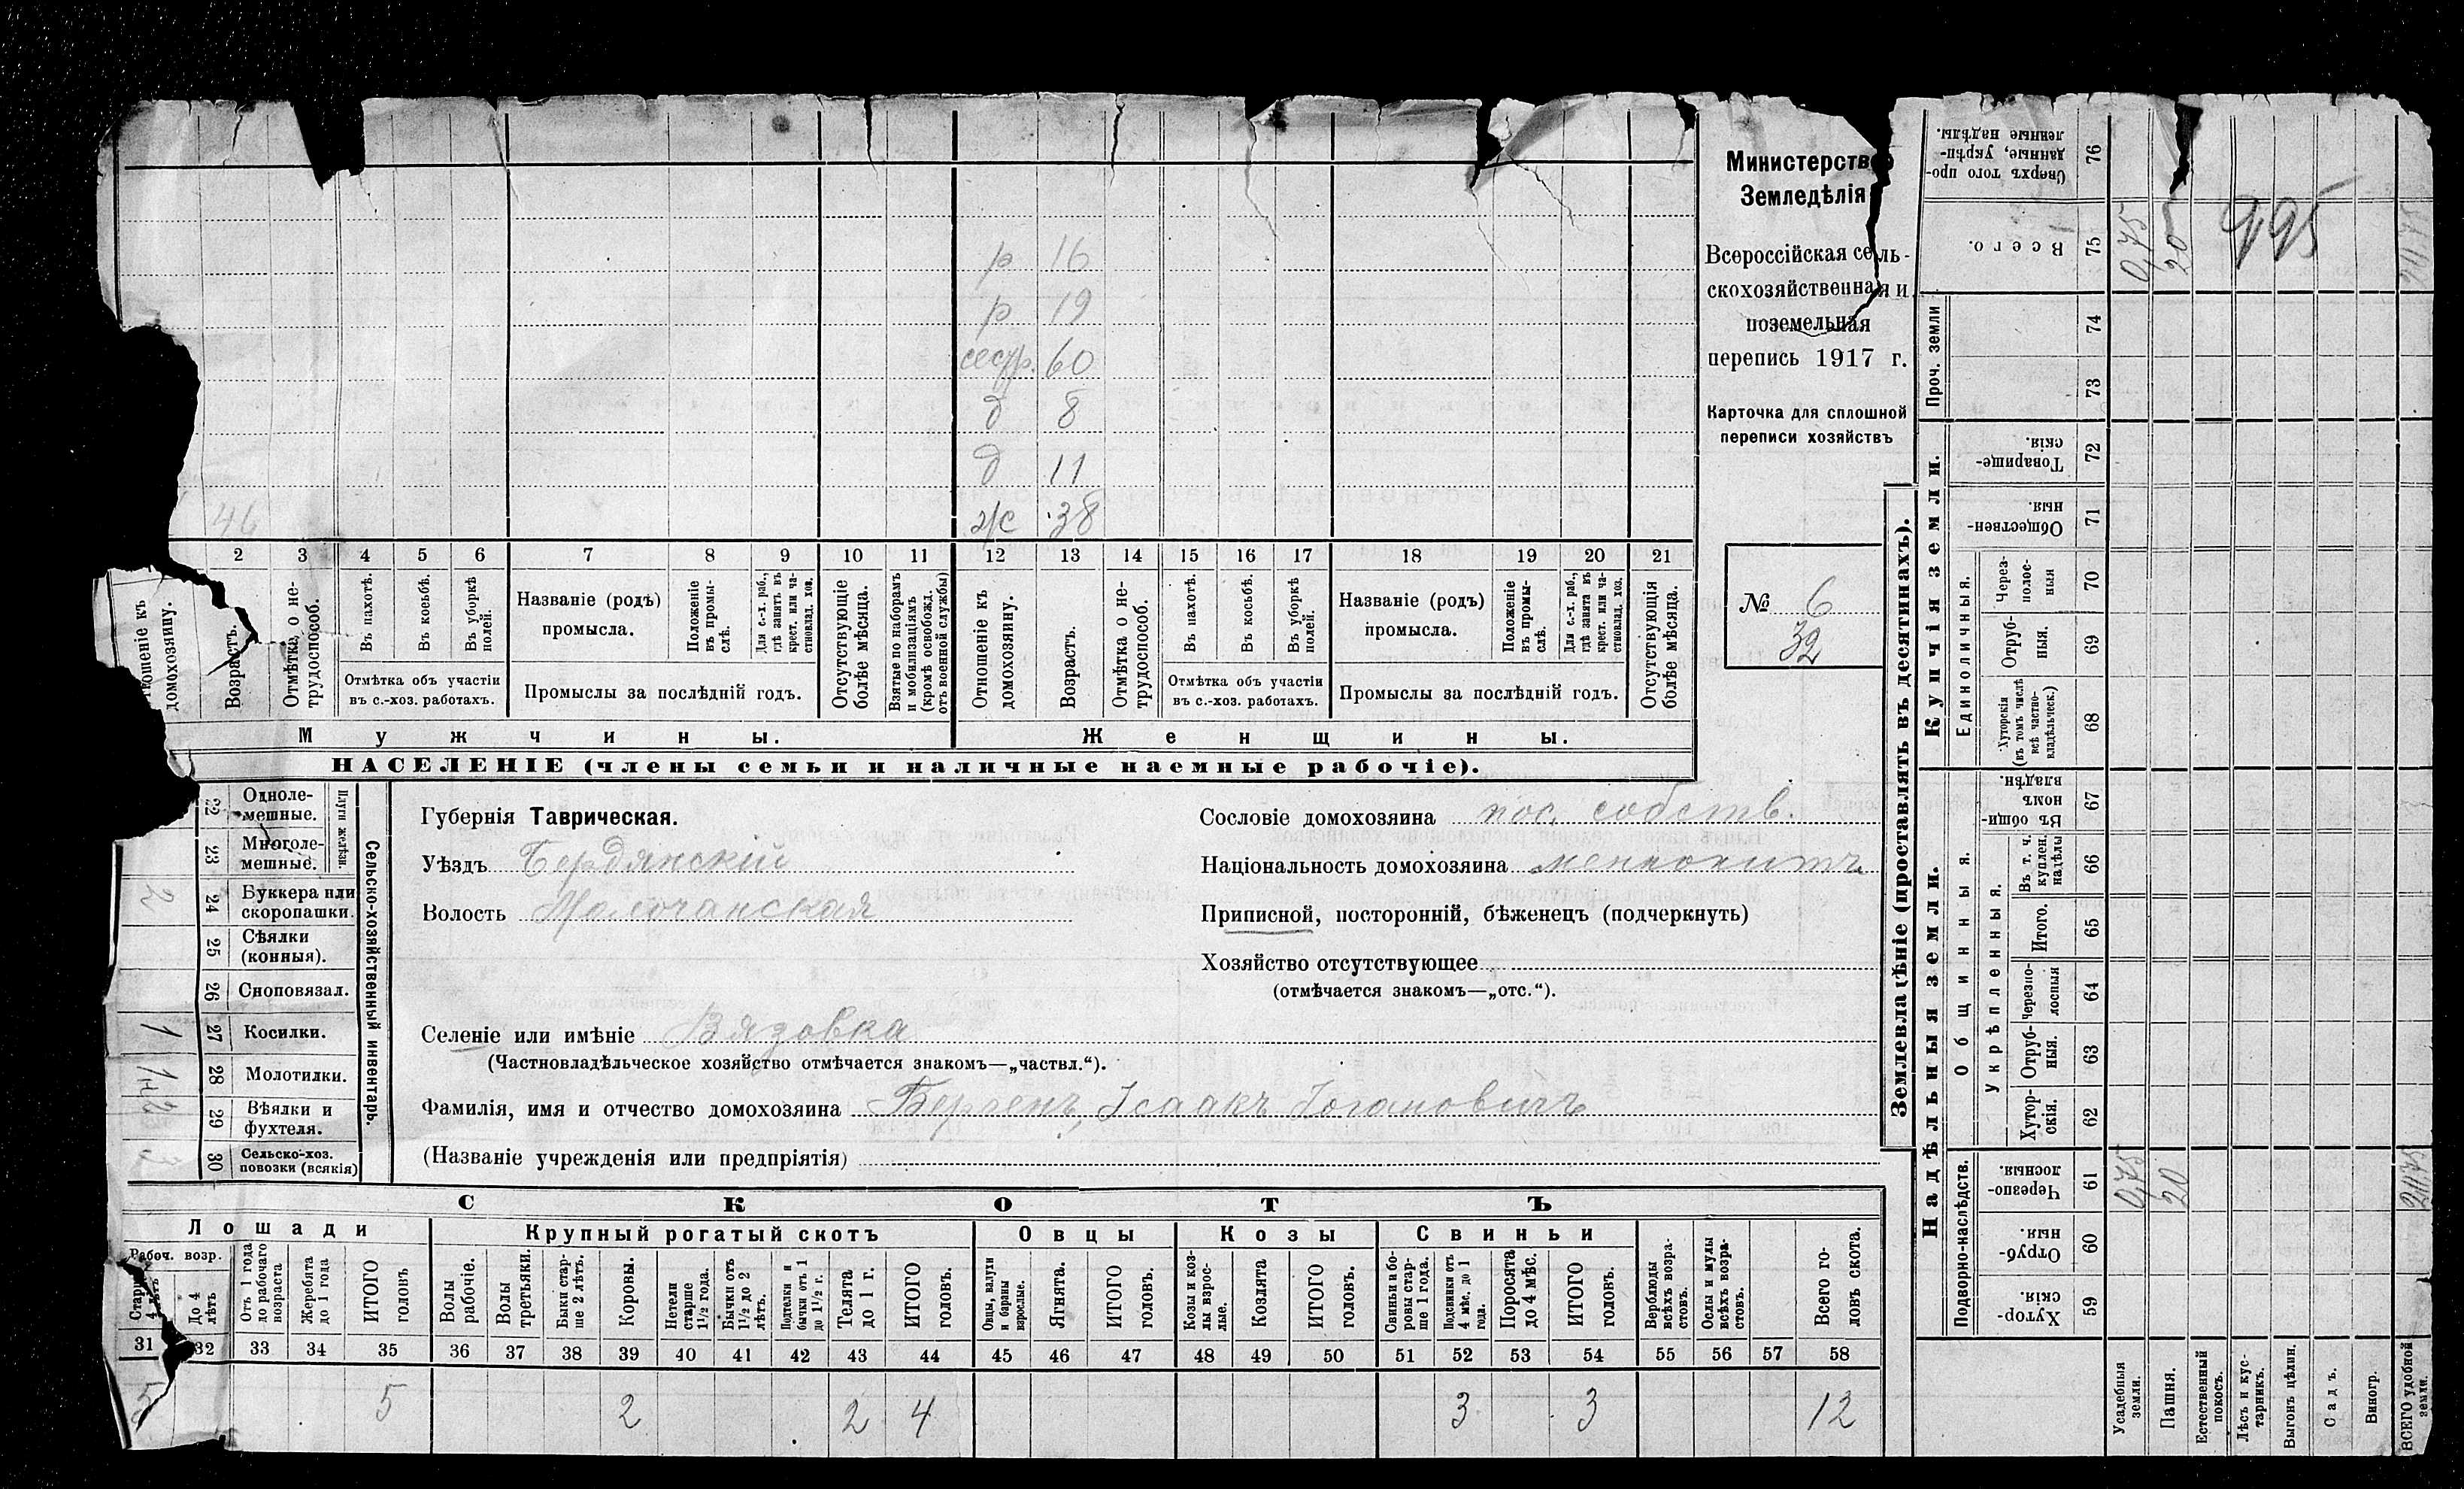 Министерство
Земледѣлія
Всероссійская сель-
скохозяйственная и
поземельная
перепись 1917 г.
Карточка для сплошной
переписи хозяйствъ
№ 6
32
р 16
р 19
сестр. 60
д 8
д 11
46
ж 38
2 3 4 5 6 7 8 9 10 11 12 13 14 15 16 17 18 19 20 21
домохозяину.
Возрастъ.
Отмѣтка о не-
трудоспособ.
Въ пахотѣ.
Въ косьбѣ.
Въ уборкѣ
полей.
Отмѣтка объ участіи
въ с.-хоз. работахъ.
Названіе (родъ)
промысла.
Положеніе
въ промы-
слѣ.
Для с.-х. раб.,
гдѣ занятъ въ
крест. или ча-
стновлад. хоз.
Промыслы за послѣдній годъ.
Отсутствующіе
болѣе мѣсяца.
Взятые по наборамъ
и мобилизаціямъ
(кромѣ освобожд.
отъ военной службы)
Отношеніе къ
домохозяину.
Возрастъ.
Отмѣтка о не-
трудоспособ.
Въ пахотѣ.
Въ косьбѣ.
Въ уборкѣ
полей.
Отмѣтка объ участіи
въ с.-хоз. работахъ.
Названіе (родъ)
промысла.
Положеніе
въ промы-
слѣ.
Для с.-х. раб.,
гдѣ занята въ
крест. или ча-
стновлад. хоз.
Промыслы за послѣдній годъ.
Отсутствующія
болѣе мѣсяца.
Мужчины.
Женщины.
НАСЕЛЕНІЕ (члены семьи и наличные наемные рабочіе).
Губернія Таврическая.
Уѣздъ Бердянскій
Волость Молочанская
Сословіе домохозяина пос. собств.
Національность домохозяина меннонитъ
Приписной, посторонній, бѣженецъ (подчеркнуть)
Хозяйство отсутствующее
(отмѣчается знакомъ—„отс.“).
Селеніе или имѣніе Вязовка
(Частновладѣльческое хозяйство отмѣчается знакомъ—„частвл.“).
Фамилія, имя и отчество домохозяина Бергенъ, Исаакъ Іогановичъ
(Названіе учрежденія или предпріятія)
Сельско-хозяйственный инвентарь.
Плуги желѣзн.
22 Одноле-
мешные.
23 Многоле-
мешные.
2 24 Буккера или
скоропашки.
25 Сѣялки
(конныя).
26 Сноповязал.
1 27 Косилки.
28 Молотилки.
29 Вѣялки и
фухтеля.
3 30 Сельско-хоз.
повозки (всякія)
СКОТЪ
Лошади
Крупный рогатый скотъ
Овцы
Козы
Свиньи
Рабоч. возр.
До 4
лѣтъ
Отъ 1 года
до рабочаго
возраста
Жеребята
до 1 года
ИТОГО
головъ
Волы
рабочіе.
Волы
третьяки.
Быки стар-
ше 2 лѣтъ.
Коровы.
Нетели
старше
1½ года.
Бычки отъ
1½ до 2
лѣтъ.
Подтелки и
бычки отъ 1
до 1½ г.
Телята
до 1 г.
ИТОГО
головъ.
Овцы, валухи
и бараны
взрослые.
Ягнята.
ИТОГО
головъ.
Козы и коз-
лы взрос-
лые.
Козлята
ИТОГО
головъ.
Свиньи и бо-
ровы стар-
ше 1 года.
Подсвинки отъ
4 мѣс. до 1
года.
Поросята
до 4 мѣс.
ИТОГО
головъ.
Верблюды
всѣхъ возра-
стовъ.
Ослы и мулы
всѣхъ возра-
стовъ.
Всего го-
ловъ скота.
31 32 33 34 35 36 37 38 39 40 41 42 43 44 45 46 47 48 49 50 51 52 53 54 55 56 57 58
5 5 2 2 4 3 3 12
Землевладѣніе (проставлять въ десятинахъ).
Надѣльныя земли.
Купчія земли.
Проч. земли
Подворно-наслѣдств.
Общинныя.
Укрѣпленныя.
Единоличныя.
Сверхъ того про-
данные, укрѣп-
ленные надѣлы.
76
Всего.
75
0,75
20
995
74
73
Товарище-
скія.
72
Обществен-
ныя
71
Через-
полос-
ныя
70
Отруб-
ныя.
69
Хуторскія
(въ томъ числѣ
всѣ частно-
владѣльческ.)
68
Въ общин-
номъ
владѣн.
67
Въ т. ч.
куплен.
надѣлы
66
Итого.
65
Черезпо-
лосныя
64
Отруб-
ныя.
63
Хутор-
скія.
62
Черезпо-
лосныя.
61
0,75
20
Отруб-
ныя.
60
Хутор-
скія.
59
Усадебныя
земли.
Пашня.
Естественный
покосъ.
Лѣсъ и кус-
тарникъ.
Выгонъ цѣлин.
Садъ.
Виногр.
ВСЕГО удобной
земли.